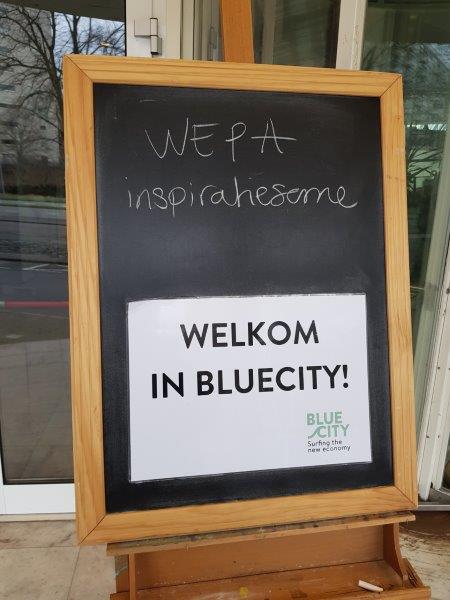 WEPA
inspiratiesome
WELKOM
IN BLUECITY!
BLUE
CITY
Surfing the
new economy